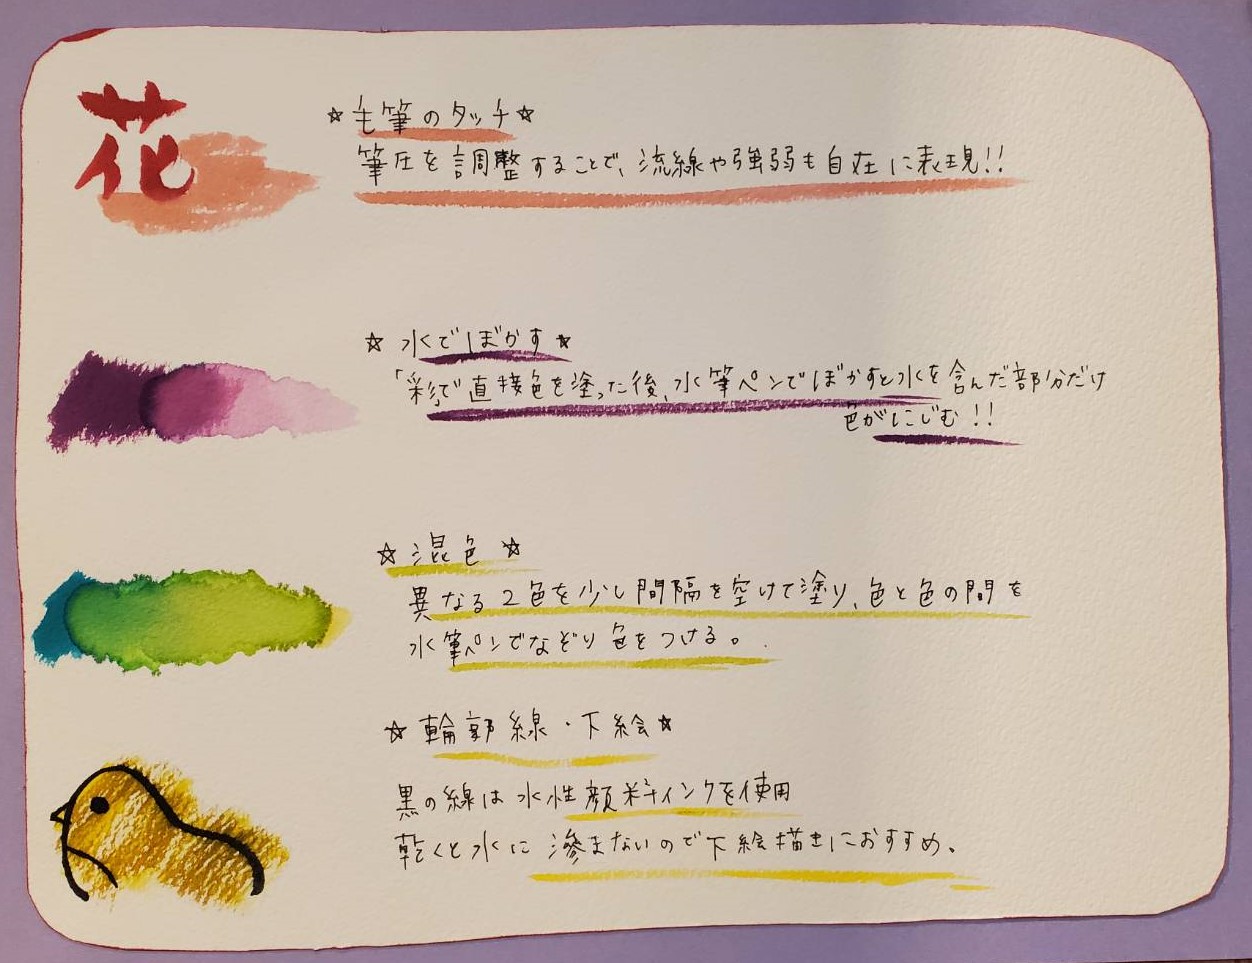 花
☆毛筆のタッチ☆
筆圧を調整することで、流線や強弱も自在に表現!!
☆水でぼかす☆
「彩」で直接色を塗った後、水筆ペンでぼかすと水を含んだ部分だけ
色がにじむ!!
☆混色☆
異なる2色を少し間隔を空けて塗り、色と色の間を
水筆ペンでなぞり色をつける。
☆輪郭線・下絵☆
黒の線は水性顔料インクを使用
乾くと水に滲まないので下絵描きにおすすめ。